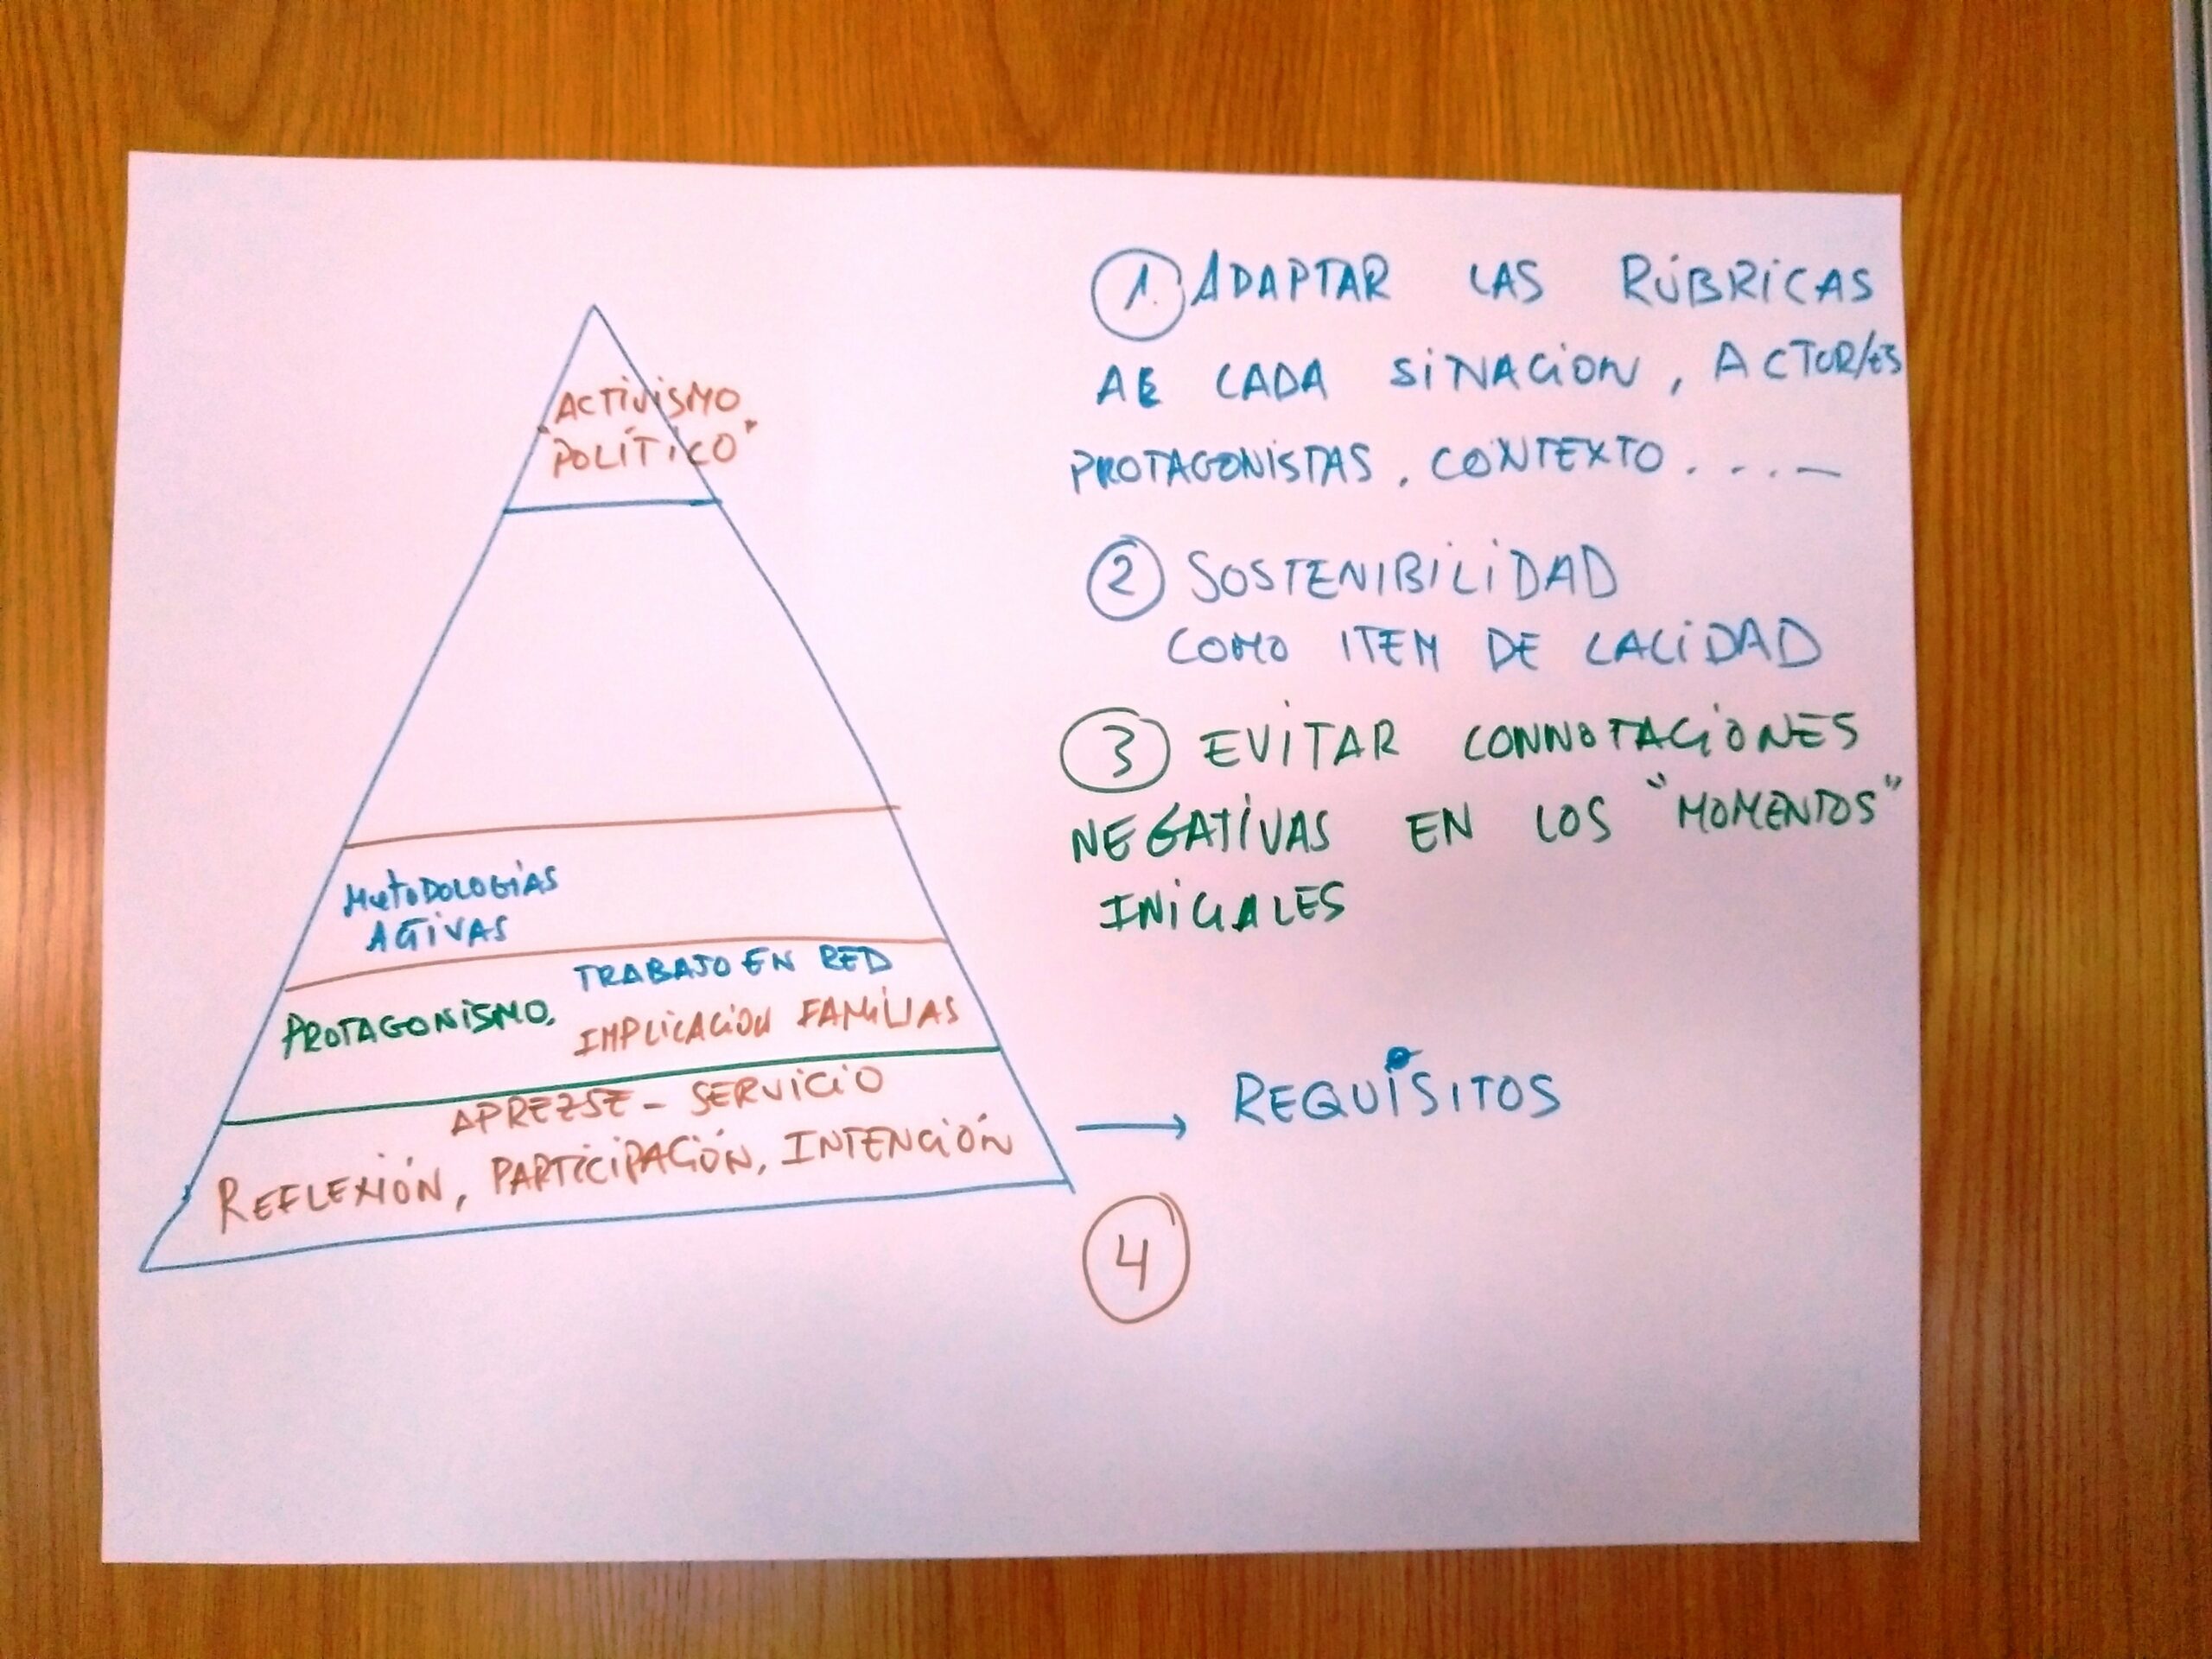 ACTIVISMO
"POLÍTICO"
METODOLOGÍAS
ACTIVAS
TRABAJO EN RED
PROTAGONISMO,
IMPLICACION FAMILIAS
APREZSE - SERVICIO
REFLEXIÓN, PARTICIPACIÓN, INTENCIÓN
1. ADAPTAR LAS RÚBRICAS
CADA SITUACION, ACTOR/ES
PROTAGONISTAS, CONTEXTO.....
2 SOSTENIBILIDAD
COMO ITEM DE CALIDAD
3 EVITAR CONNOTACIONES
NEGATIVAS EN LOS "MOMENTOS"
INICIALES
→ REQUISITOS
4